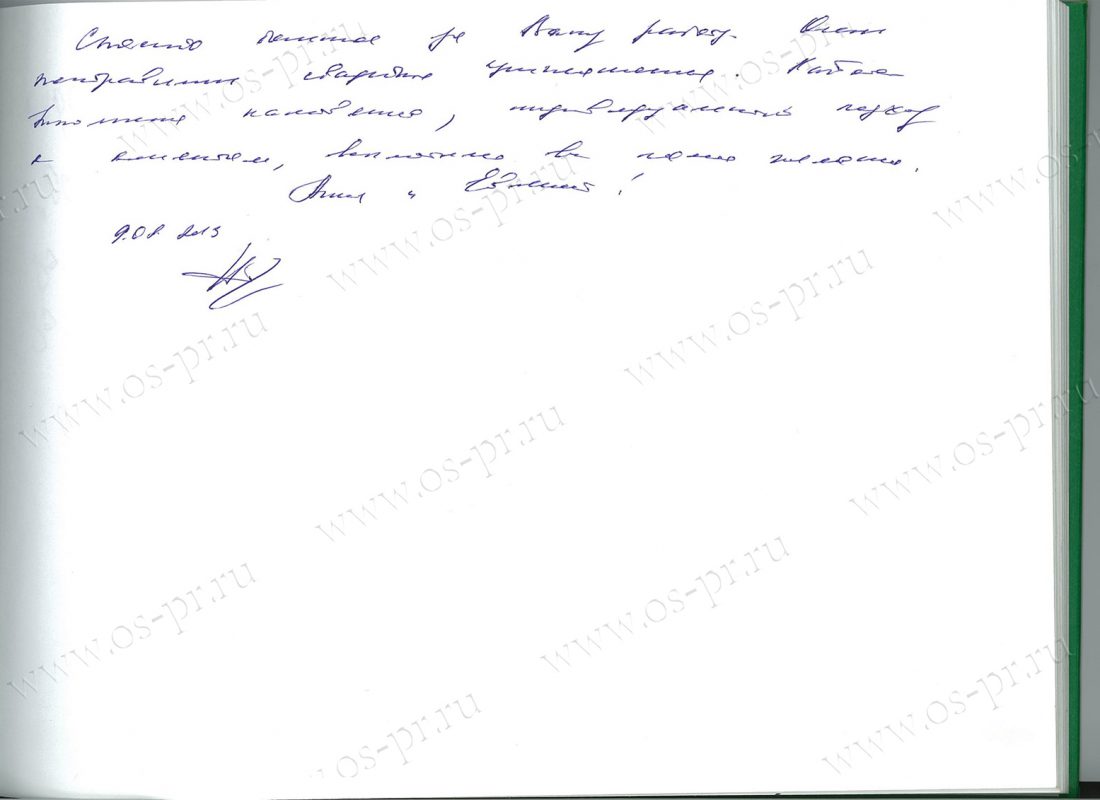 Спасибо большое за Вашу работу. Очень
понравились свадебные приглашения. Работа
выполнена качественно, индивидуальный подход
к клиентам, воплотили все наши желания.
Анна и Евгений!
9.08.2013
www.os-pr.ru
www.os-pr.ru
www.os-pr.ru
www.os-pr.ru
www.os-pr.ru
www.os-pr.ru
www.os-pr.ru
www.os-pr.ru
www.os-pr.ru
www.os-pr.ru
www.os-pr.ru